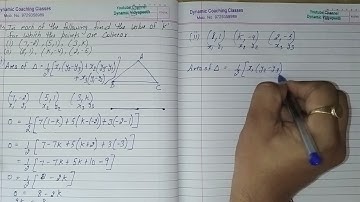 Dynamic Coaching Classes
Youtube Channel
Dynamic Vidyapeeth
In each of the following find the value of 'K'
for which the points are Collinear
(i) (7, -2), (5, 1), (3, K)
(ii) (8, 1), (K, -4), (2, -5)
Area of Δ = 1/2 [x₁(y₂-y₃) + x₂(y₃-y₁) + x₃(y₁-y₂)]
A
B
C
(7, -2) (5, 1) (3, K)
x₁ y₁ x₂ y₂ x₃ y₃
0 = 1/2 [7(1-K) + 5(K-(-2)) + 3(-2-1)]
0 = 1/2 [7-7K + 5(K+2) + 3(-3)]
0 = 1/2 [7-7K+5K+10-9]
0 = 1/2 [8-2K]
0 = 8-2K
2K = 8
Dynamic Coaching Classes
Youtube Channel
Dynamic Vidyapeeth
(ii) (8, 1) (K, -4) (2, -5)
x₁ y₁ x₂ y₂ x₃ y₃
Area of Δ = 1/2 [x₁(y₂-y₃)